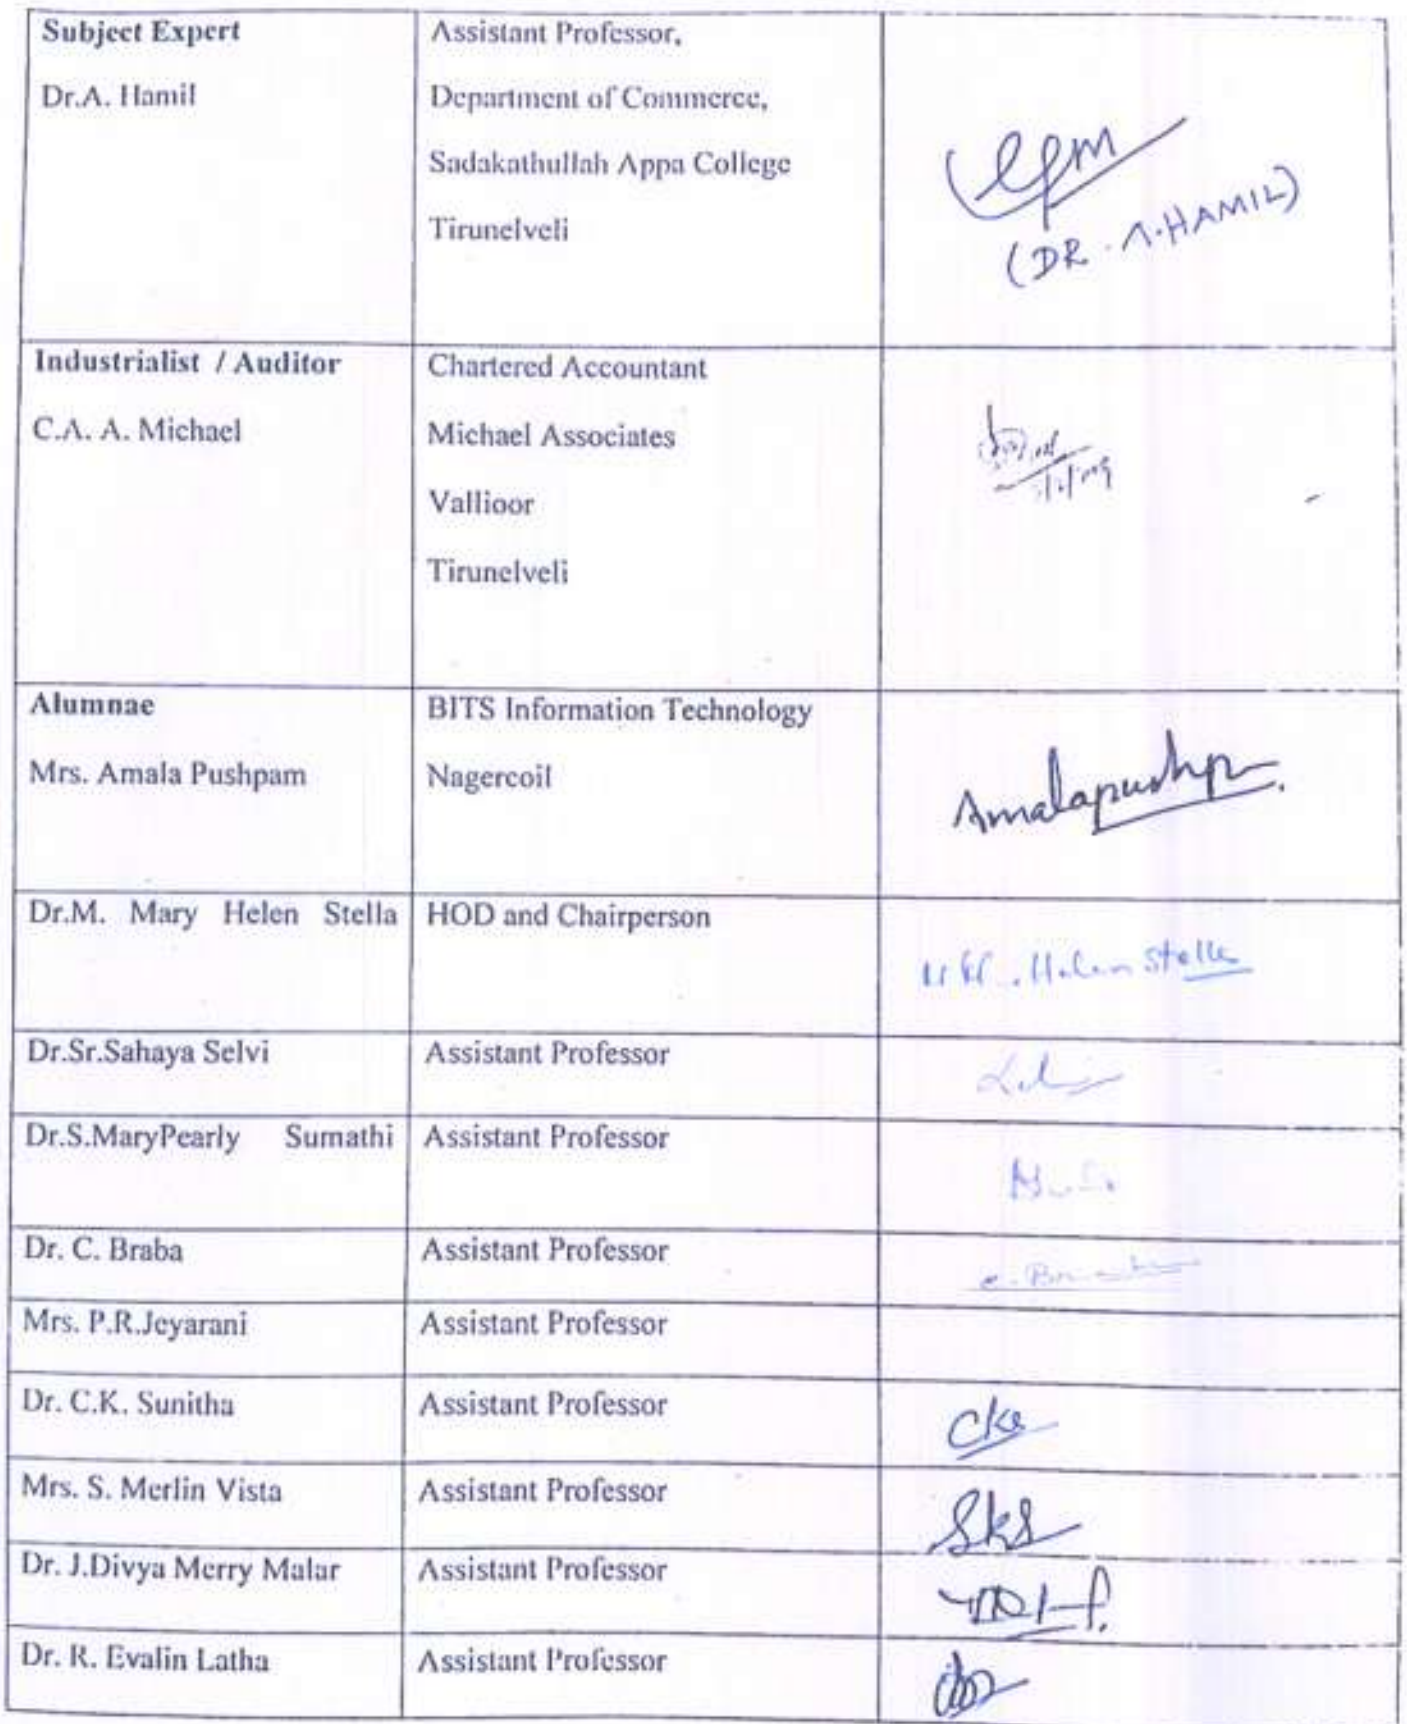 Subject Expert
Assistant Professor,
Dr.A. Hamil
Department of Commerce,
Sadakathullah Appa College
Tirunelveli
(DR. A. HAMIL)
Industrialist / Auditor
Chartered Accountant
C.A. A. Michael
Michael Associates
Vallioor
Tirunelveli
Alumnae
BITS Information Technology
Mrs. Amala Pushpam
Nagercoil
Amalapushp
Dr.M. Mary Helen Stella
HOD and Chairperson
Helen Stella
Dr.Sr.Sahaya Selvi
Assistant Professor
Dr.S.MaryPearly Sumathi
Assistant Professor
Dr. C. Braba
Assistant Professor
Mrs. P.R.Jeyarani
Assistant Professor
Dr. C.K. Sunitha
Assistant Professor
Mrs. S. Merlin Vista
Assistant Professor
Dr. J.Divya Merry Malar
Assistant Professor
Dr. R. Evalin Latha
Assistant Professor